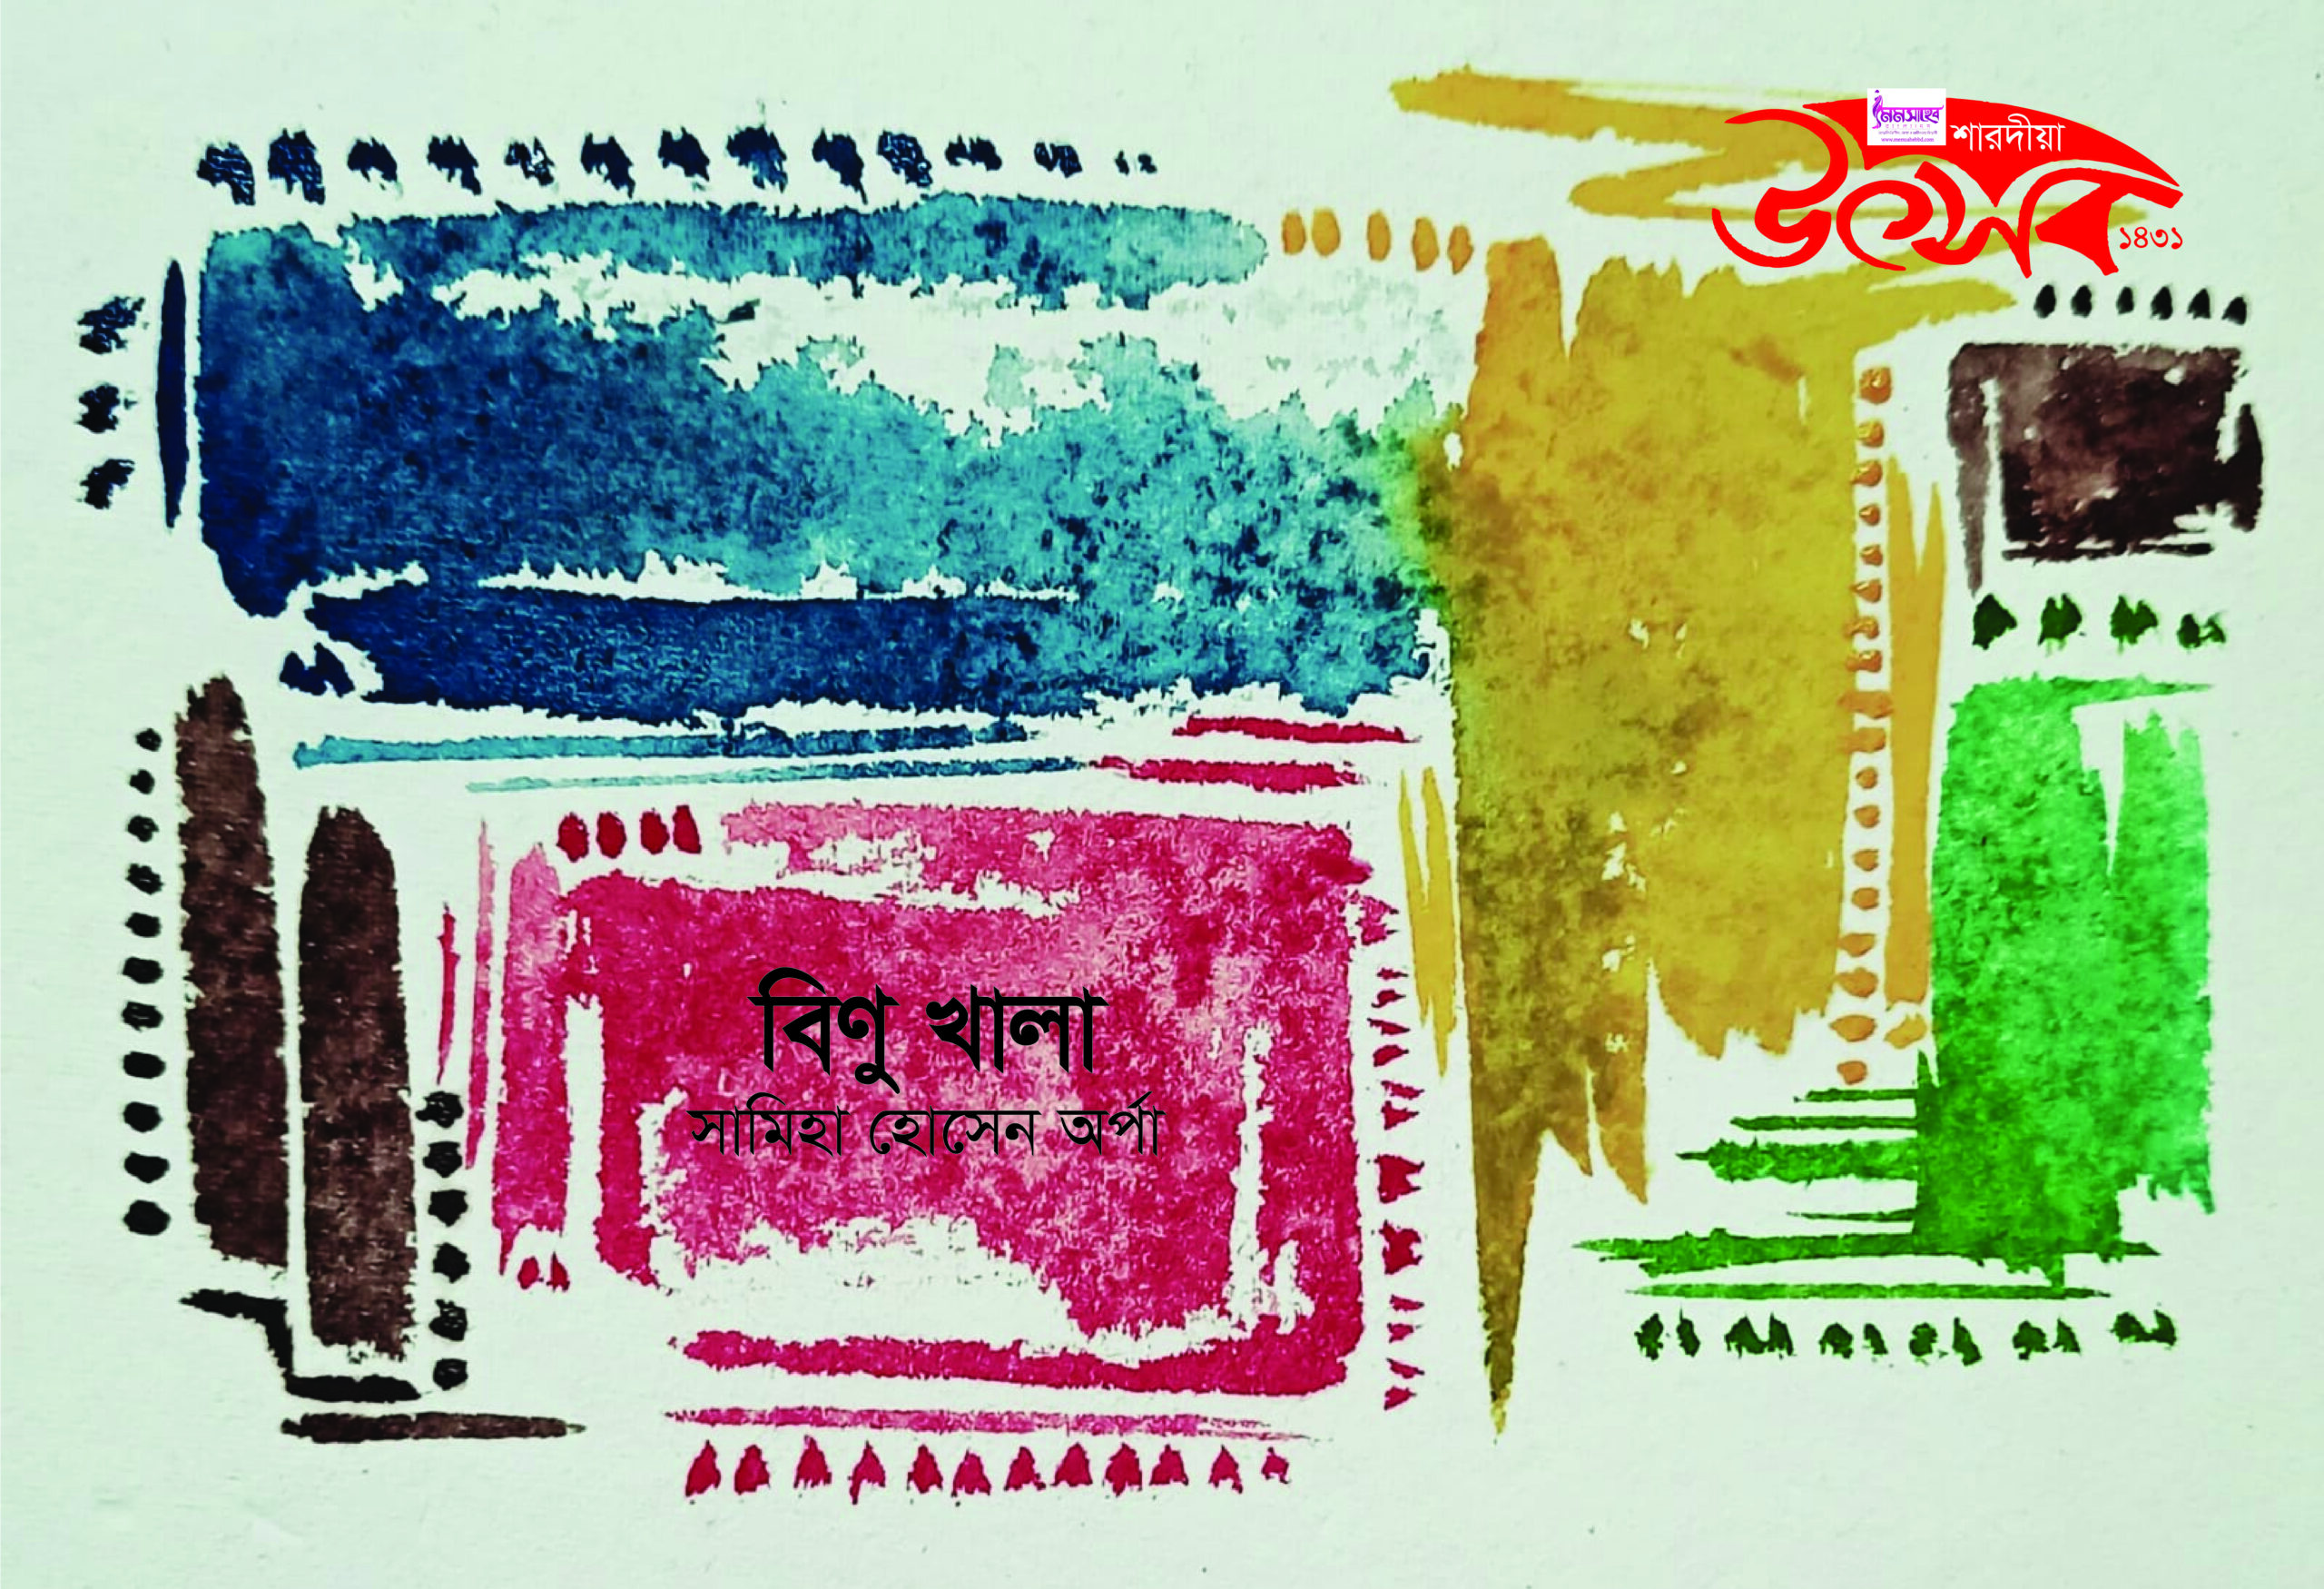 মেমসাহেব
শারদীয়া
উৎসব
১৪৩১
বিণু খালা
সামিহা হোসেন অর্পা